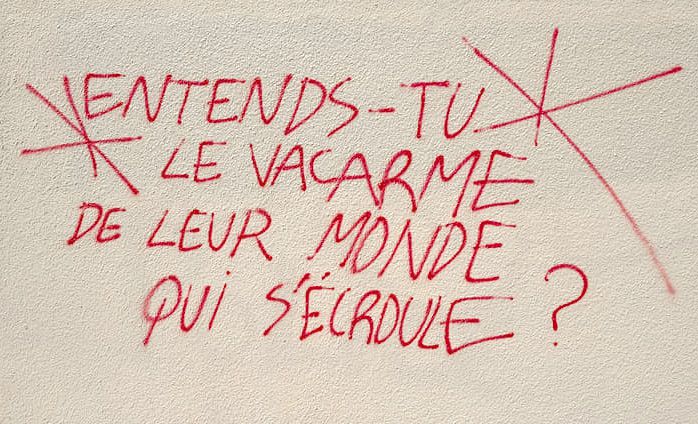 ENTENDS-TU
LE VACARME
DE LEUR MONDE
QUi S'ÉCROULE ?